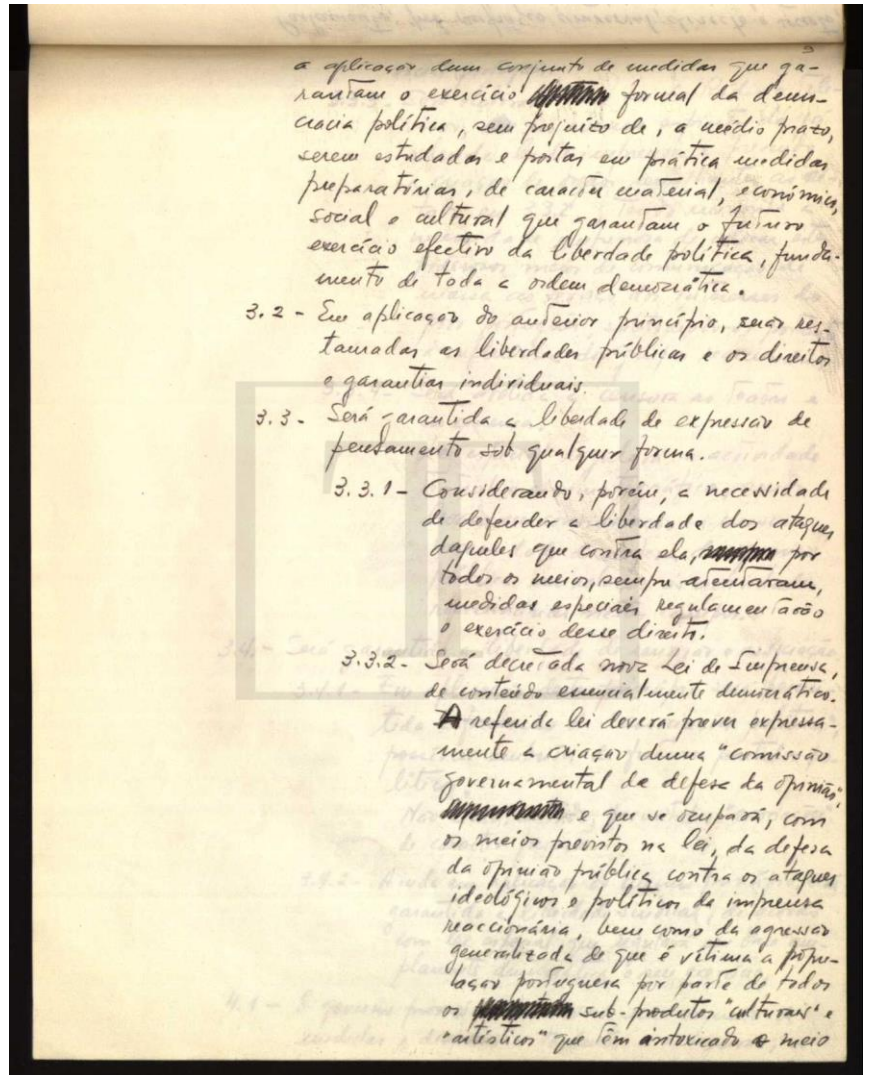 a aplicação dum conjunto de medidas que ga-
rantam o exercício formal da demo-
cracia política, sem prejuízo de, a médio prazo,
serem estudadas e postas em prática medidas
preparatórias, de carácter material, económico,
social e cultural que garantam o futuro
exercício efectivo da liberdade política, funda-
mento de toda a ordem democrática.
3.2 - Em aplicação do anterior princípio, serão res-
tauradas as liberdades públicas e os direitos
e garantias individuais.
3.3. - Será garantida a liberdade de expressão de
pensamento sob qualquer forma.
3.3.1 - Considerando, porém, a necessidade
de defender a liberdade dos ataques
daqueles que contra ela, por
todos os meios, sempre atentaram,
medidas especiais regulamentarão
o exercício desse direito.
3.3.2 - Será decretada nova Lei de Imprensa,
de conteúdo essencialmente democrático.
A referida lei deverá prever expressa-
mente a criação duma "comissão
governamental de defesa da opinião",
e que se ocupará, com
os meios previstos na lei, da defesa
da opinião pública contra os ataques
ideológicos e políticos da imprensa
reaccionária, bem como da agressão
generalizada de que é vítima a popu-
lação portuguesa por parte de todos
os sub-produtos "culturais" e
"artísticos" que têm intoxicado o meio